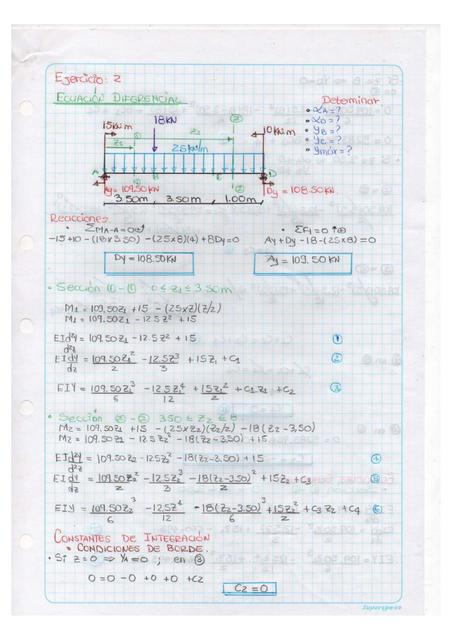 Ejercicio: 2
ECUACIÓN DIFERENCIAL
Determinar
• αA = ?
• αD = ?
• yB = ?
• yC = ?
• ymáx = ?
15kN.m 18KN 10kN.m
Z1 Z2
25kN/m
A B D
Ay = 109.50 KN Dy = 108.50 KN
3.50m , 3.50m , 1.00m
Reacciones
• ΣMA-A = 0
-15+10-(18x3.50)-(25x8)(4)+8Dy=0
Dy = 108.50KN
• ΣFy = 0
Ay + Dy - 18 - (25x8) = 0
Ay = 109.50 KN
• Sección ①-① 0 ≤ Z1 ≤ 3.50m
M1 = 109.50Z1 + 15 - (25xZ)(Z/2)
M1 = 109.50Z1 - 12.5Z² + 15
EId²y/d²z = 109.50Z1 - 12.5Z² + 15 ①
EIdy/dz = 109.50Z1²/2 - 12.5Z³/3 + 15Z1 + C1 ②
EIY = 109.50Z1³/6 - 12.5Z1⁴/12 + 15Z1²/2 + C1.Z1 + C2 ③
• Sección ②-② 3.50 ≤ Z2 ≤ 8
M2 = 109.50Z1 + 15 - (25xZ2)(Z2/2) - 18(Z2-3.50)
M2 = 109.50Z1 - 12.5Z2² - 18(Z2-3.50) + 15
EId²y/d²z = 109.50Z2 - 12.5Z² - 18(Z2-3.50) + 15 ④
EIdy/dz = 109.50Z2²/2 - 12.5Z2³/3 - 18(Z2-3.50)²/2 + 15Z2 + C3 ⑤
EIY = 109.50Z2³/6 - 12.5Z⁴/12 - 18(Z2-3.50)³/6 + 15Z²/2 + C3Z2 + C4 ⑥
CONSTANTES DE INTEGRACIÓN
• CONDICIONES DE BORDE.
• Si Z = 0 ⇒ YA = 0 ; en ③
0 = 0 - 0 + 0 + 0 + C2
C2 = 0